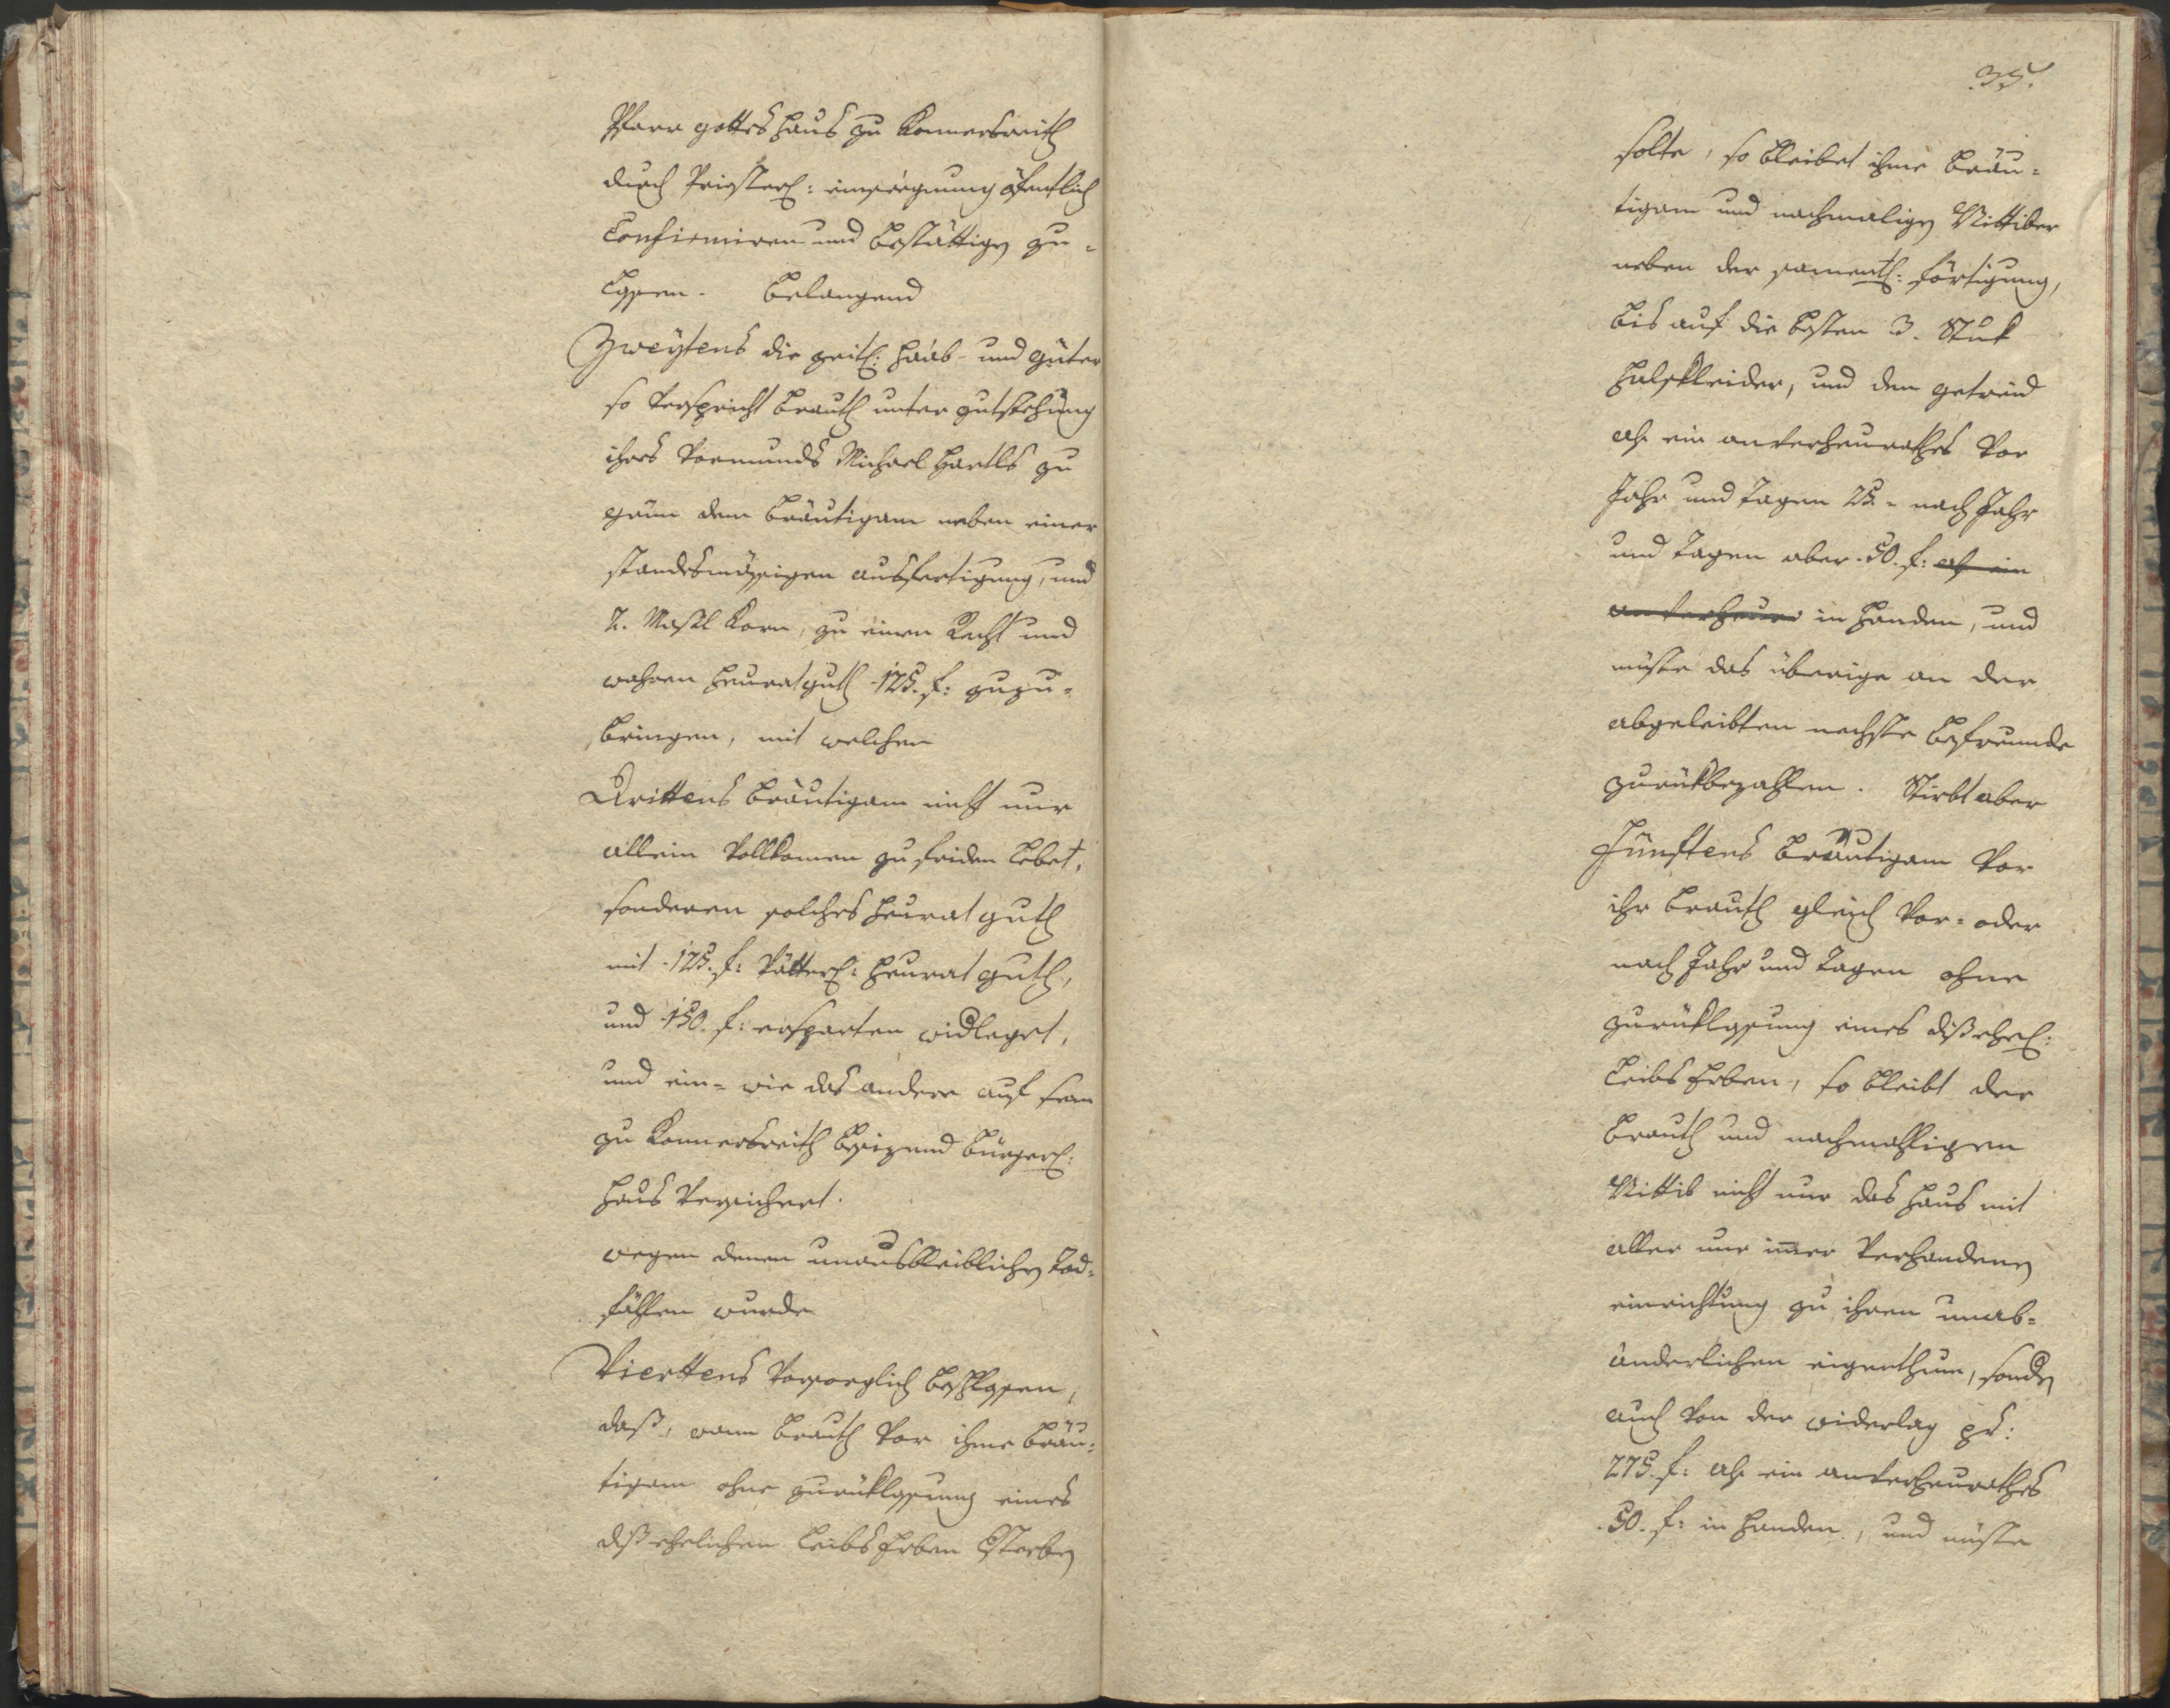 Pfarr gottes Haus zu Konnersreith
durch Priesterl: einseegnung öfentlich
Confirmiren und bestättigen zu-
lassen. Belangend
Zweÿtens die zeitl: Haab- und Güter
so verspricht Brauth unter gutstehung
ihres Vormunds Michael Hartls zu
grün dem Bräutigam neben einer
standesmässigen ausfertigung, und
2. Mässl Korn, zu einen Recht und
wahren Heuratguth 125. f: zuzu-
bringen, mit welchen
Drittens Bräutigam nicht nur
allein vollkomen zufriden lebet,
sonderen solches Heurat guth
mit 125. f: vätterl: Heurat guth,
und 150. f: ersparten widleget,
und ein- wie das andere auf sein
zu Konnersreith besizend bürgerl:
Haus versichert.
wegen denen unausbleiblichen Tod-
fählen wurde
Vierttens vorsorglich beschlossen,
daß, wann Brauth vor ihme Bräu-
tigam ohne zurücklassung eines
dißehelichen Leibs Erben sterben
35.
solte, so bleibet ihme Bräu-
tigam und nachmaligen Wittiber
neben der sammentl: förtigung,
bis auf die besten 3. Stuk
Halskleider, und dem getreid
als ein anverheurathes vor
Jahr und Tagen 25.- nach Jahr
und Tagen aber 50. f: als ein
anverheura in Handen, und
müste das überige an der
abgeleibten nechste befreunde
zurückbezahlen. Stirbt aber
Fünftens Bräutigam vor
ihr Brauth gleich vor- oder
nach Jahr und Tagen ohne
zurücklassung eines dißehel:
Leibs Erben, so bleibt der
Brauth und nachmahligen
Wittib nicht nur das Haus mit
aller nur imer verhandenen
einrichtung zu ihren unab-
änderlichen eigenthum, sondern
auch von der widerlag pr:
275. f: als ein anverheurathes
50. f: in Handen, und müste